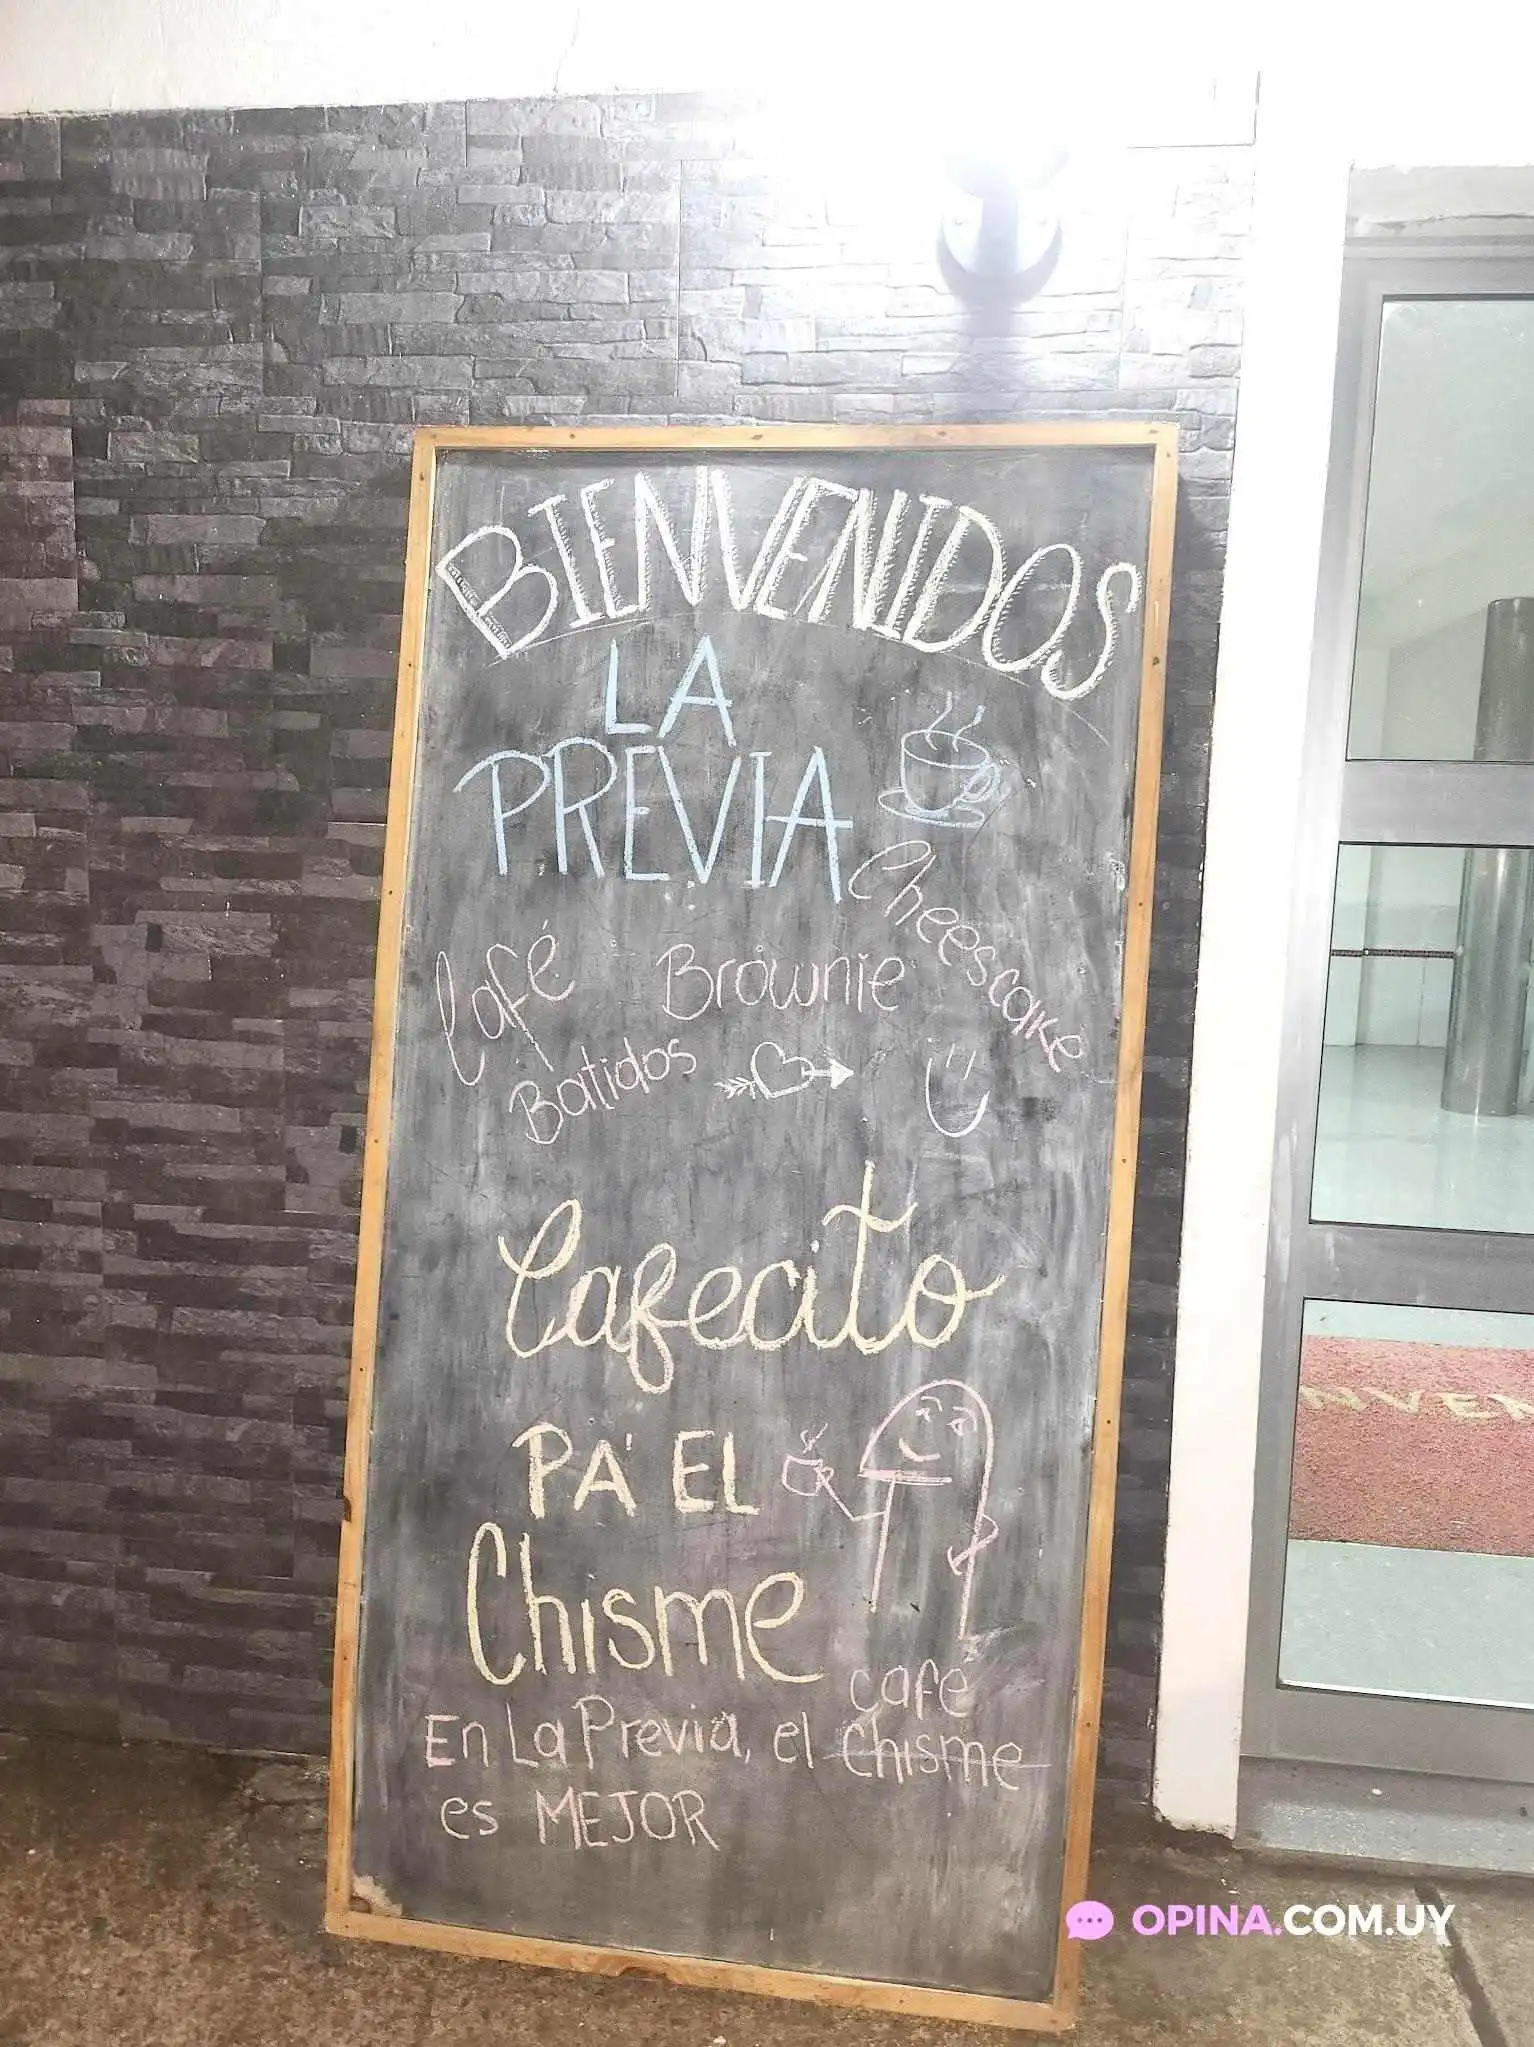 BIENVENIDOS
LA
PREVIA
Cheescake
Café
Brownie
Batidos
Cafecito
PA' EL
Chisme
café
En La Previa, el chisme
es MEJOR
NVEN
OPINA.COM.UY